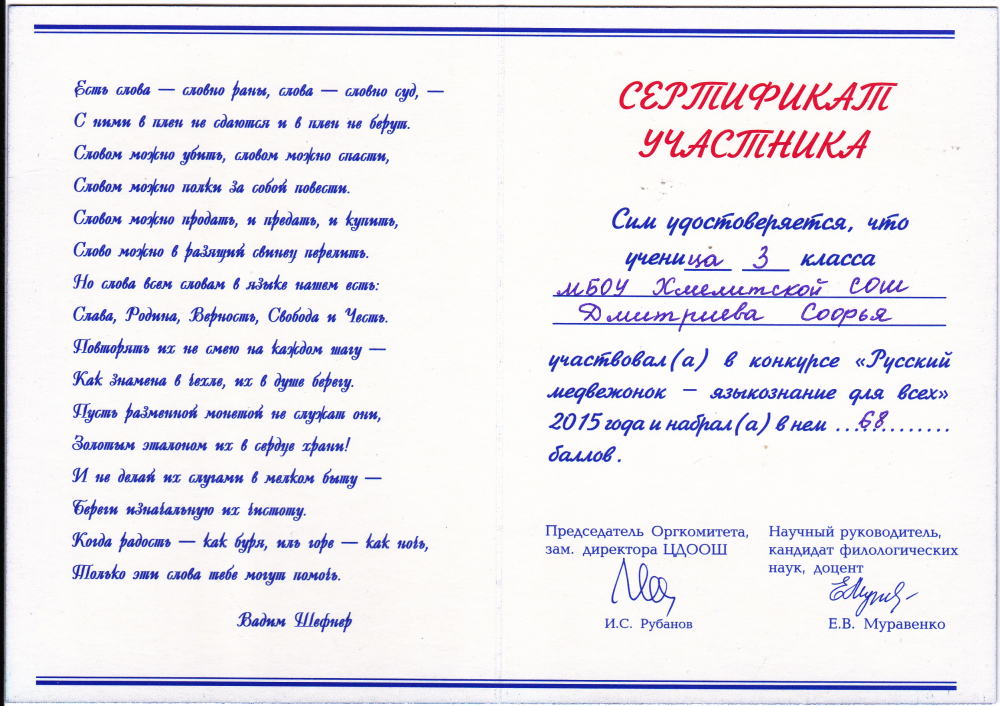 Есть слова — словно раны, слова — словно суд, —
С ними в плен не сдаются и в плен не берут.
Словом можно убить, словом можно спасти,
Словом можно полки за собой повести.
Словом можно продать, и предать, и купить,
Слово можно в разящий свинец перелить.
Но слова всем словам в языке нашем есть:
Слава, Родина, Верность, Свобода и Честь.
Повторять их не смею на каждом шагу —
Как знамена в чехле, их в душе берегу.
Пусть разменной монетой не служат они,
Золотым эталоном их в сердце храни!
И не делай их слугами в мелком быту —
Береги изначальную их чистоту.
Когда радость — как буря, иль горе — как ночь,
Только эти слова тебе могут помочь.
Вадим Шефнер
СЕРТИФИКАТ
УЧАСТНИКА
Сим удостоверяется, что
ученица 3 класса
МБОУ Хмелитской СОШ
Дмитриева Соорья
участвовал(а) в конкурсе «Русский
медвежонок – языкознание для всех»
2015 года и набрал(а) в нем ..68..........
баллов.
Председатель Оргкомитета,
зам. директора ЦДООШ
И.С. Рубанов
Научный руководитель,
кандидат филологических
наук, доцент
Е.В. Муравенко